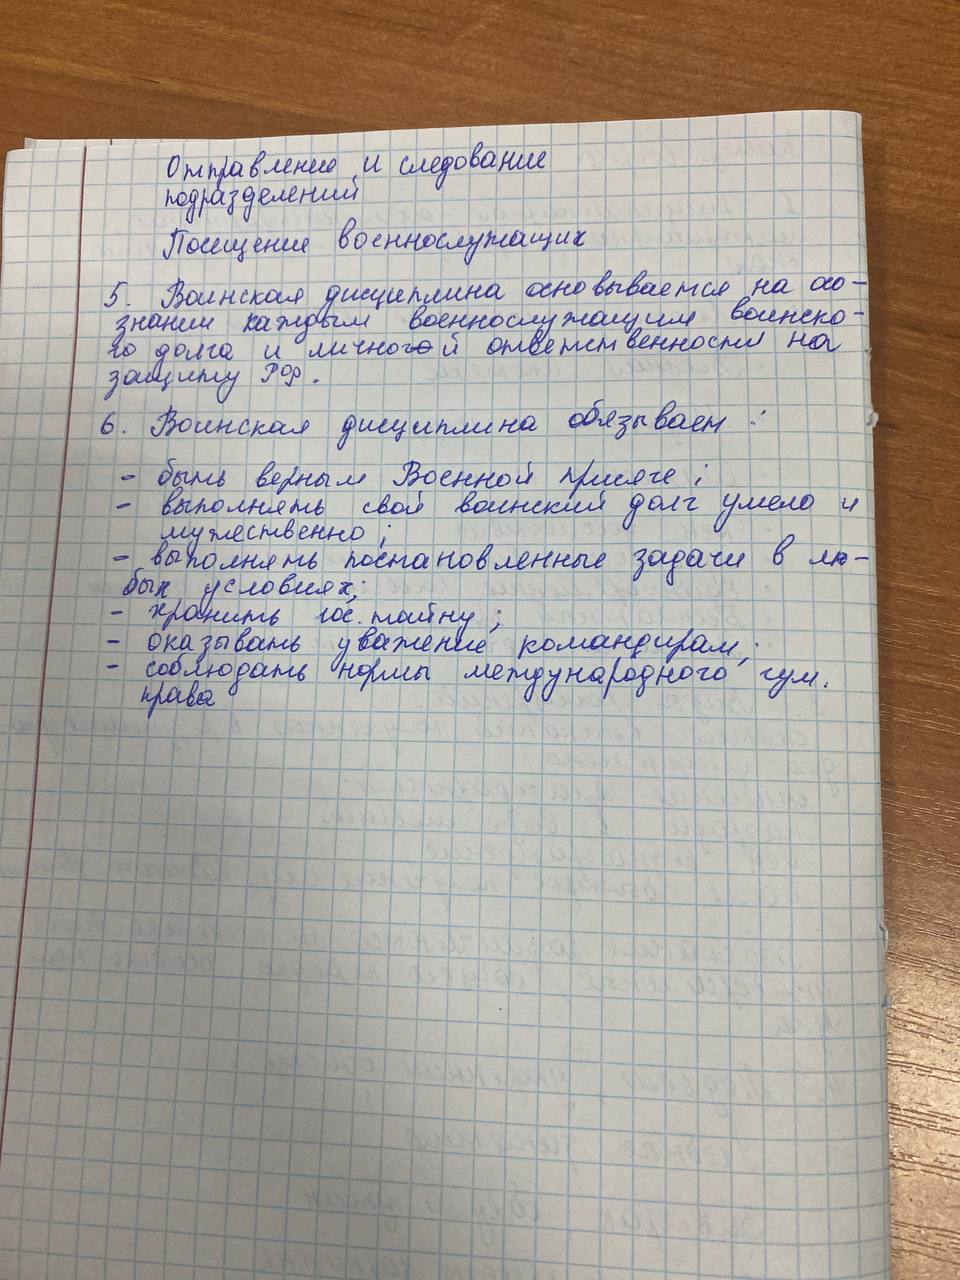 Отправление и следование
подразделений
Посещение военнослужащих
5. Воинская дисциплина основывается на осо-
знании каждым военнослужащим воинско-
го долга и личной ответственности на
защиту РФ.
6. Воинская дисциплина обязывает :
- быть верным Военной присяге ;
- выполнять свой воинский долг умело и
мужественно ;
- выполнять поставленные задачи в лю-
бых условиях;
- хранить гос. тайну ;
- оказывать уважение командирам ;
- соблюдать нормы международного гум.
права